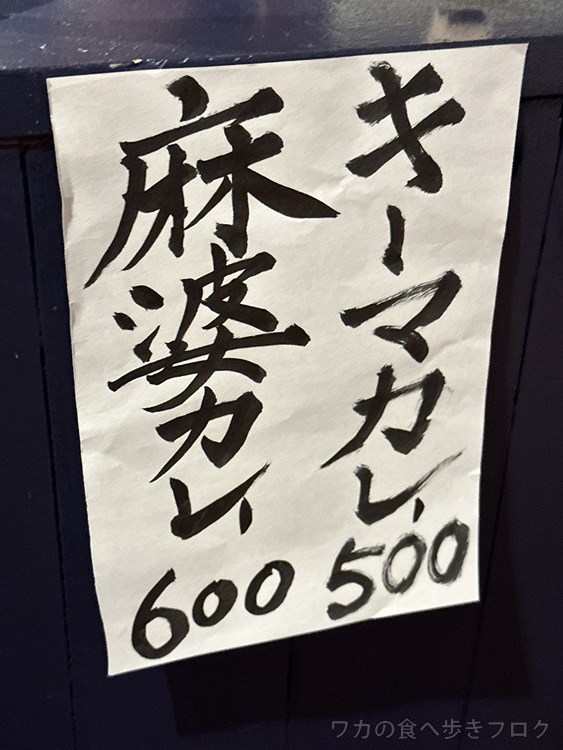 キーマカレー500
麻婆カレー600
ワカの食べ歩きブログ